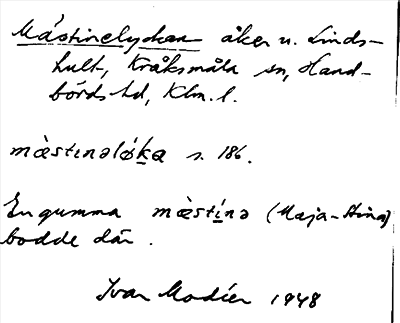 Mästinelyckan åker u. Linds-
hult, Kråksmåla sn, Hand-
börds hd, Klm. l.
mæ̀stɩnəlǿḵa s. 186.
En gumma mæ̀stí̱nə (Maja-Stina)
bodde där.
Ivar Modéer 1948